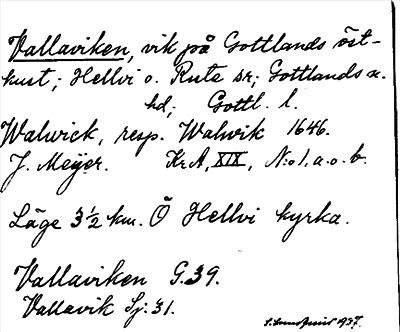 Vallaviken, vik på Gottlands öst-
kust; Hellvi o. Rute sr; Gottlands n.
hd; Gottl. l.
Walwick, resp. Walwik 1646.
J. Meijer. Kr.A, XIX, N:o 1. a. o. b.
Läge 3 ½ km. Ö Hellvi kyrka.
Vallaviken G. 39.
Vallavik Sj: 31.
1937.